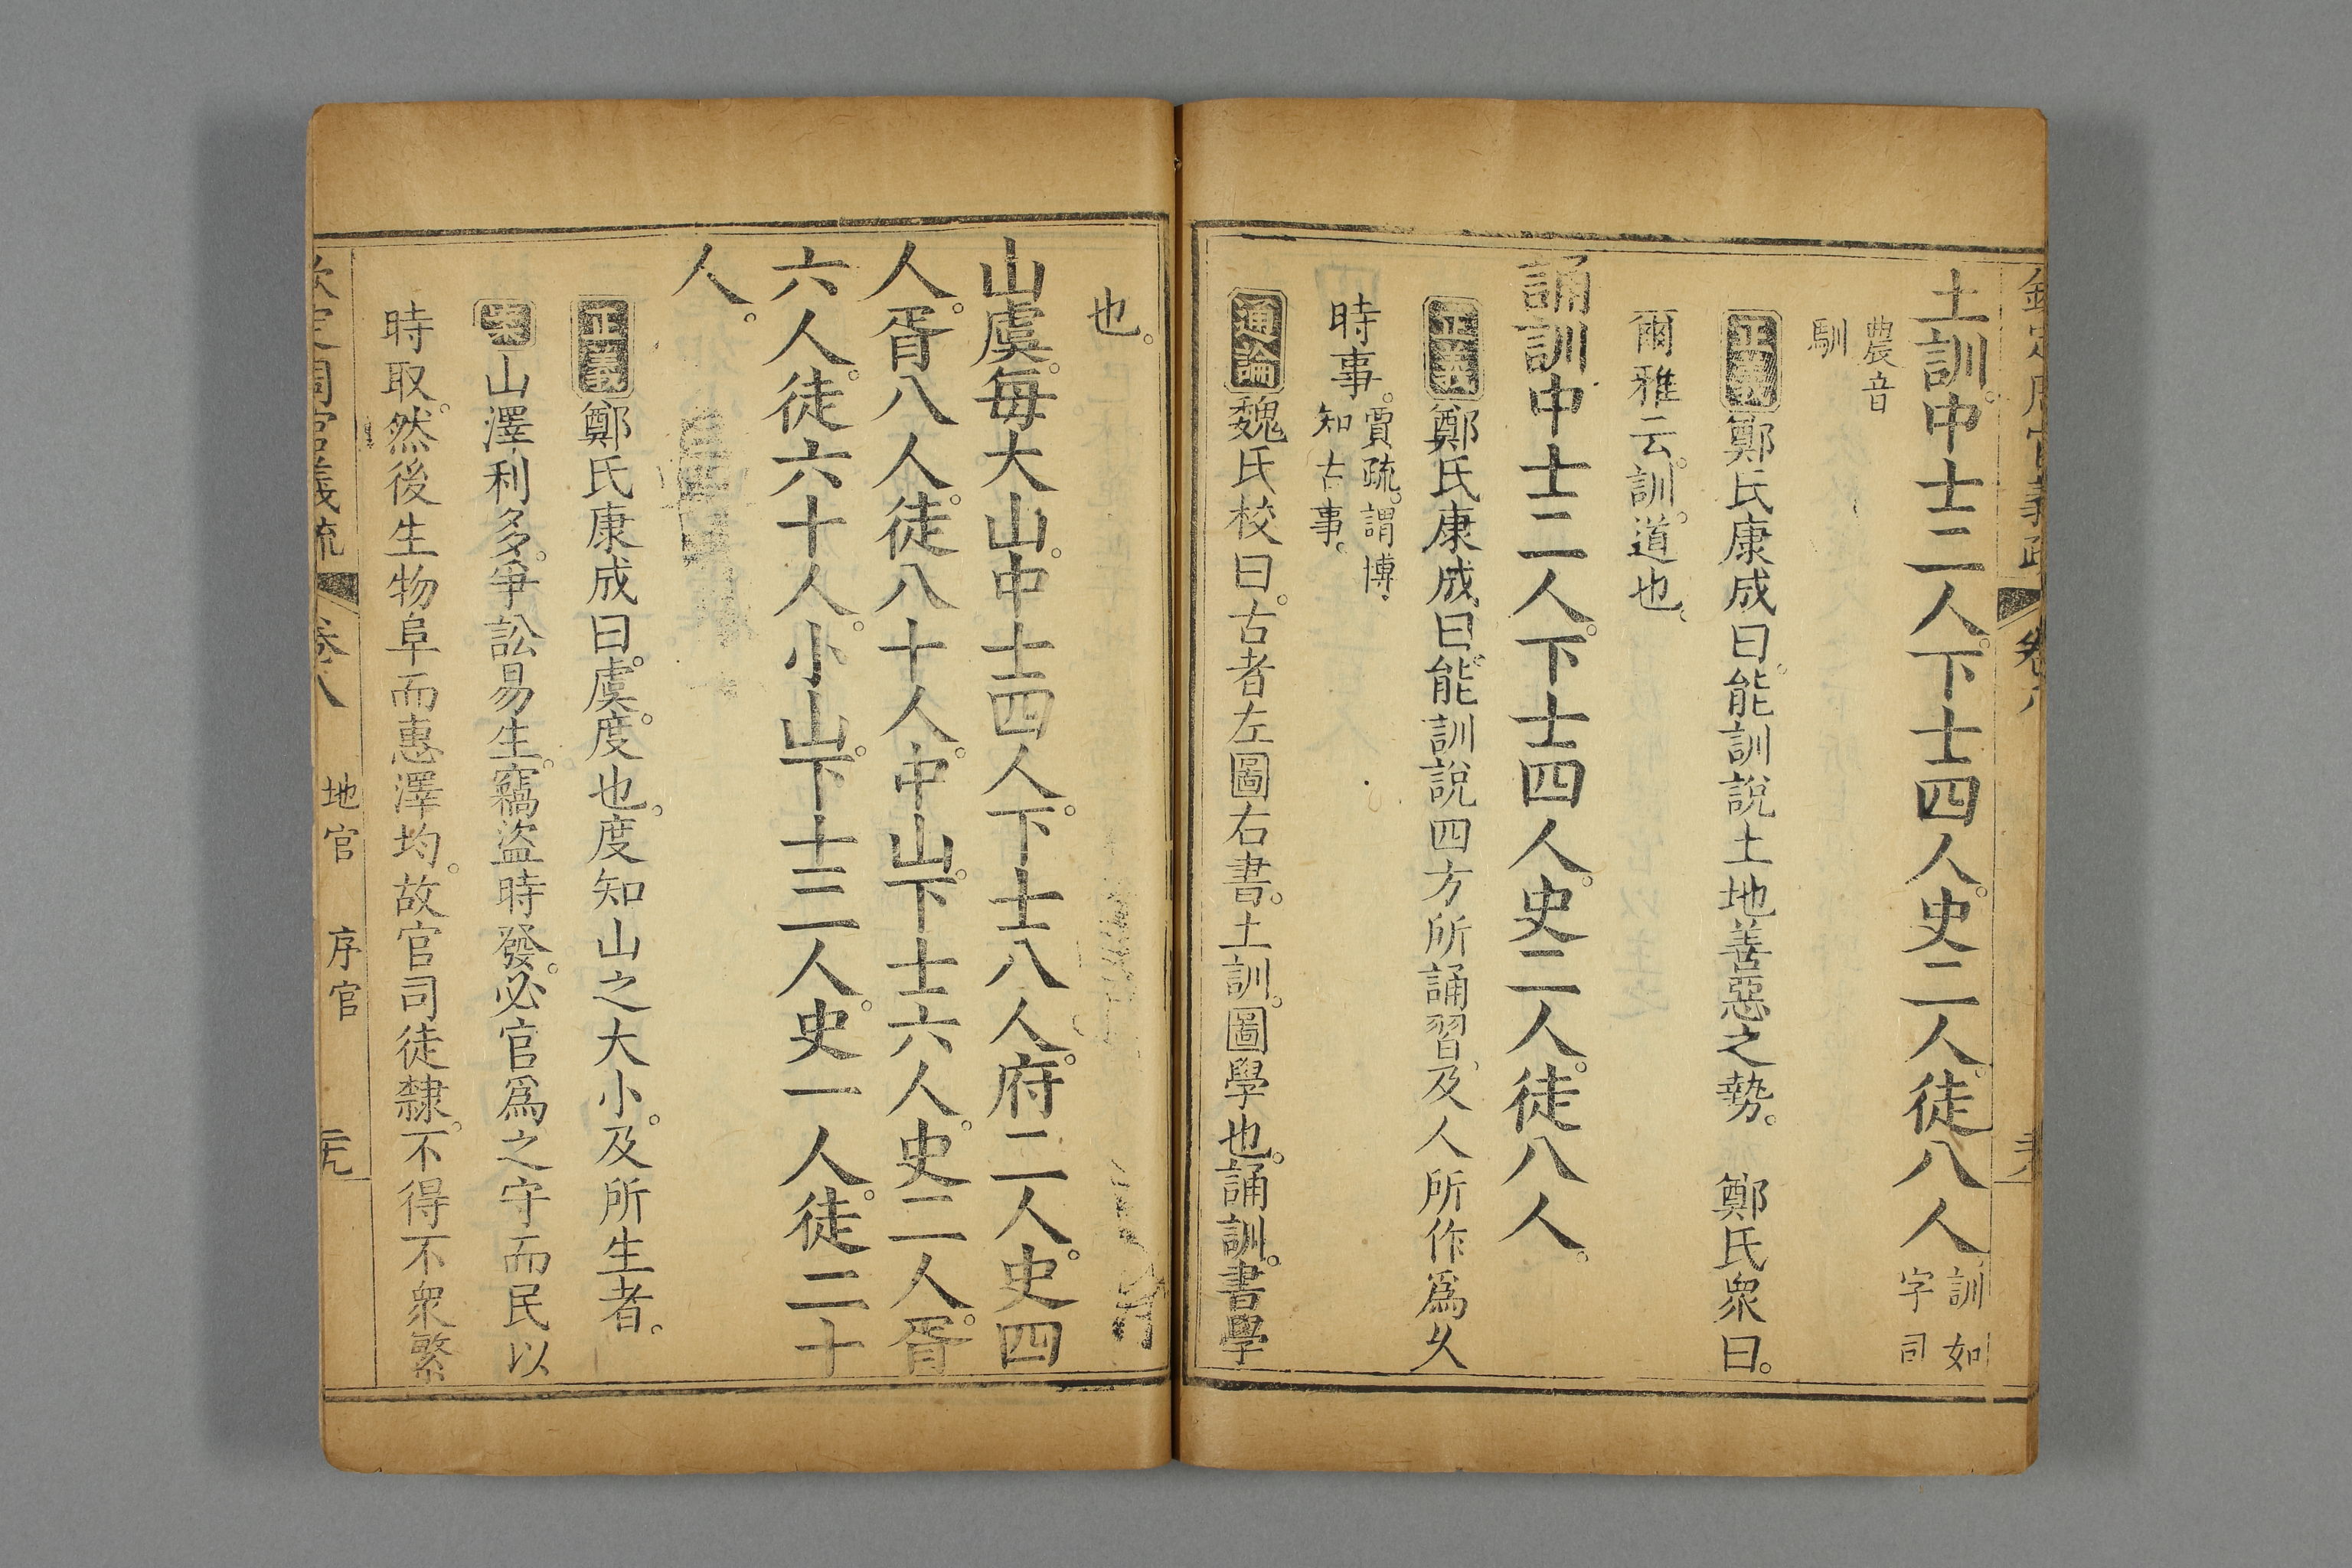 土訓。中士二人。下士四人。史二人。徒八人。訓如字司
農音馴
正義鄭氏康成曰。能訓說土地善惡之勢。 鄭氏衆曰。
爾雅云。訓。道也。
誦訓中士二人。下士四人。史二人。徒八人。
正義鄭氏康成曰。能訓說四方所誦習。及人所作爲久
時事。賈疏。謂博知古事。
通論魏氏校曰。古者左圖右書。土訓。圖學也。誦訓。書學
也。
山虞。每大山。中士四人。下士八人。府二人。史四
人。胥八人。徒八十人。中山。下士六人。史二人。胥
六人。徒六十人。小山。下士二人。史一人。徒二十
人。
正義鄭氏康成曰。虞。度也。度知山之大小。及所生者。
案山澤利多。爭訟易生。竊盜時發。必官爲之守而民以
時取。然後生物阜而惠澤均。故官司徒隸。不得不衆繁
欽定周官義疏 卷八 地官 序官